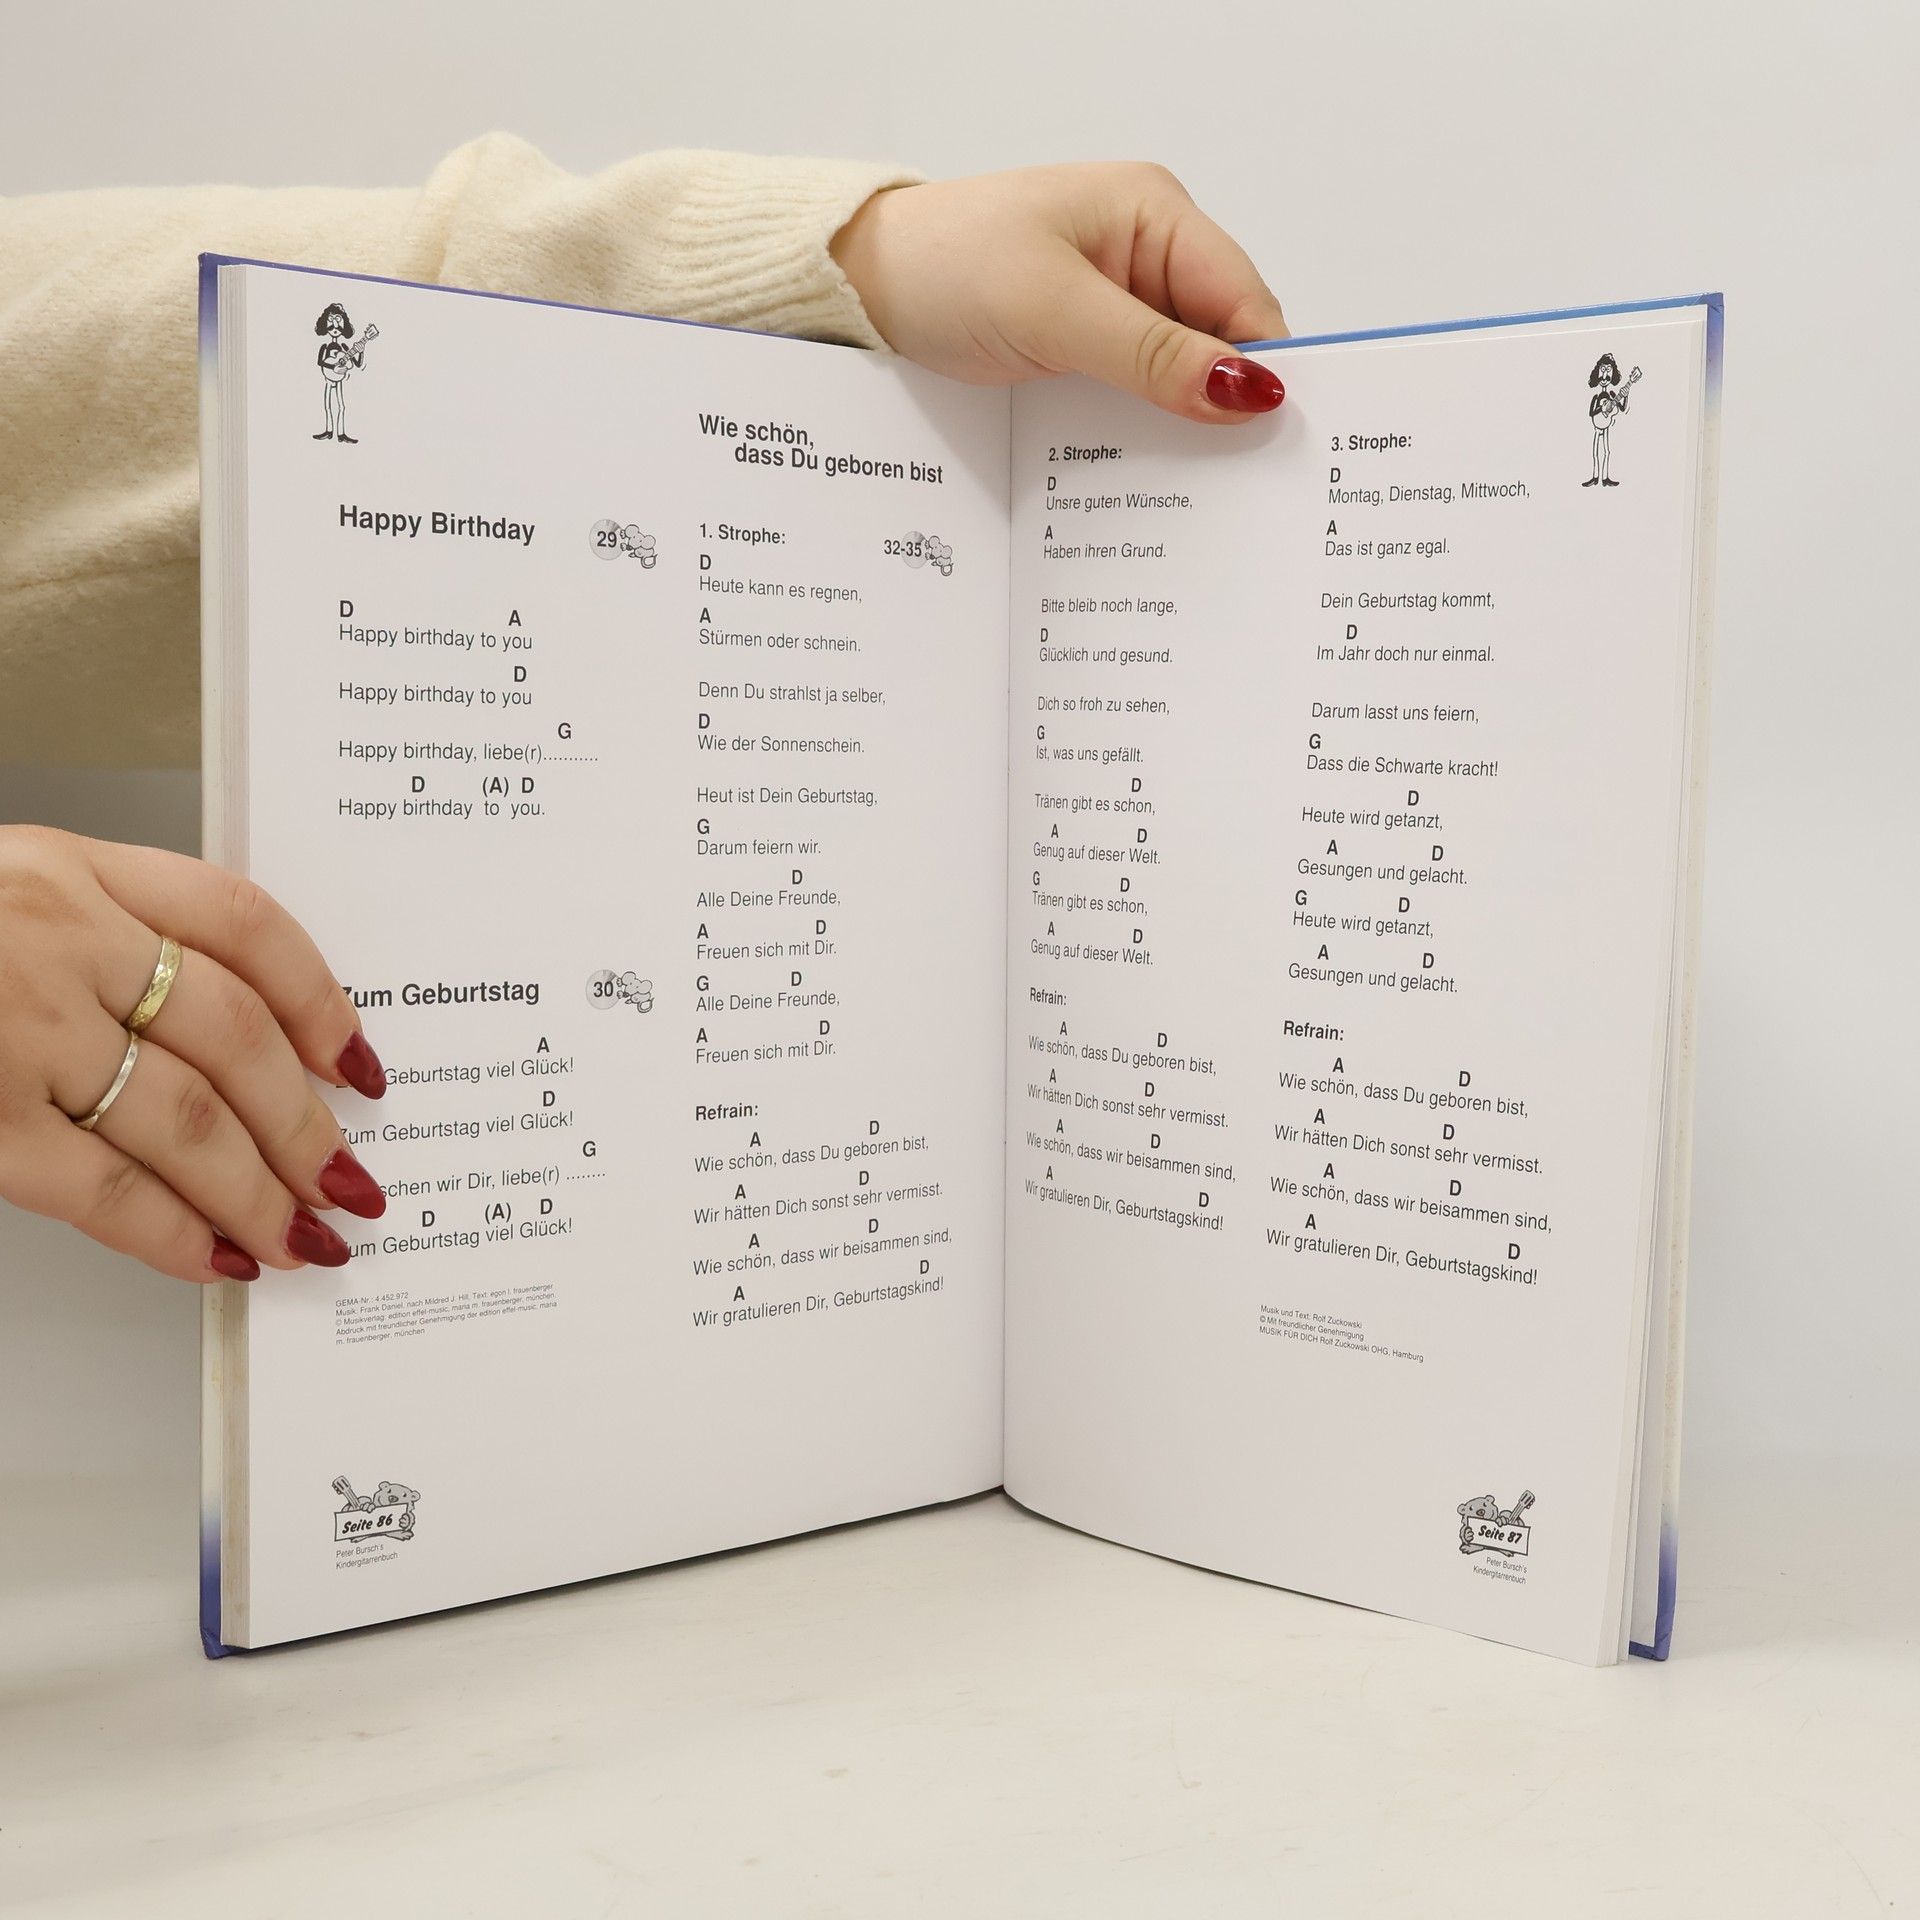 Happy Birthday
29
D A
Happy birthday to you
D
Happy birthday to you
G
Happy birthday, liebe(r)...........
D (A) D
Happy birthday to you.
Zum Geburtstag
30
A
Geburtstag viel Glück!
D
Zum Geburtstag viel Glück!
G
schen wir Dir, liebe(r) ........
D (A) D
Zum Geburtstag viel Glück!
GEMA-Nr.: 4.452.972
Musik: Frank Daniel, nach Mildred J. Hill, Text: egon l. frauenberger
© Musikverlag: edition effel-music, maria m. frauenberger, münchen.
Abdruck mit freundlicher Genehmigung der edition effel-music, maria
m. frauenberger, münchen
Seite 86
Peter Bursch's
Kindergitarrenbuch
Wie schön,
dass Du geboren bist
1. Strophe:
32-35
D
Heute kann es regnen,
A
Stürmen oder schnein.
Denn Du strahlst ja selber,
D
Wie der Sonnenschein.
Heut ist Dein Geburtstag,
G
Darum feiern wir.
D
Alle Deine Freunde,
A D
Freuen sich mit Dir.
G D
Alle Deine Freunde,
A D
Freuen sich mit Dir.
Refrain:
A D
Wie schön, dass Du geboren bist,
A D
Wir hätten Dich sonst sehr vermisst.
A D
Wie schön, dass wir beisammen sind,
A D
Wir gratulieren Dir, Geburtstagskind!
2. Strophe:
D
Unsre guten Wünsche,
A
Haben ihren Grund.
Bitte bleib noch lange,
D
Glücklich und gesund.
Dich so froh zu sehen,
G
Ist, was uns gefällt.
D
Tränen gibt es schon,
A D
Genug auf dieser Welt.
G D
Tränen gibt es schon,
A D
Genug auf dieser Welt.
Refrain:
A D
Wie schön, dass Du geboren bist,
A D
Wir hätten Dich sonst sehr vermisst.
A D
Wie schön, dass wir beisammen sind,
A D
Wir gratulieren Dir, Geburtstagskind!
3. Strophe:
D
Montag, Dienstag, Mittwoch,
A
Das ist ganz egal.
Dein Geburtstag kommt,
D
Im Jahr doch nur einmal.
Darum lasst uns feiern,
G
Dass die Schwarte kracht!
D
Heute wird getanzt,
A D
Gesungen und gelacht.
G D
Heute wird getanzt,
A D
Gesungen und gelacht.
Refrain:
A D
Wie schön, dass Du geboren bist,
A D
Wir hätten Dich sonst sehr vermisst.
A D
Wie schön, dass wir beisammen sind,
A D
Wir gratulieren Dir, Geburtstagskind!
Musik und Text: Rolf Zuckowski
© Mit freundlicher Genehmigung
MUSIK FÜR DICH Rolf Zuckowski OHG, Hamburg
Seite 87
Peter Bursch's
Kindergitarrenbuch